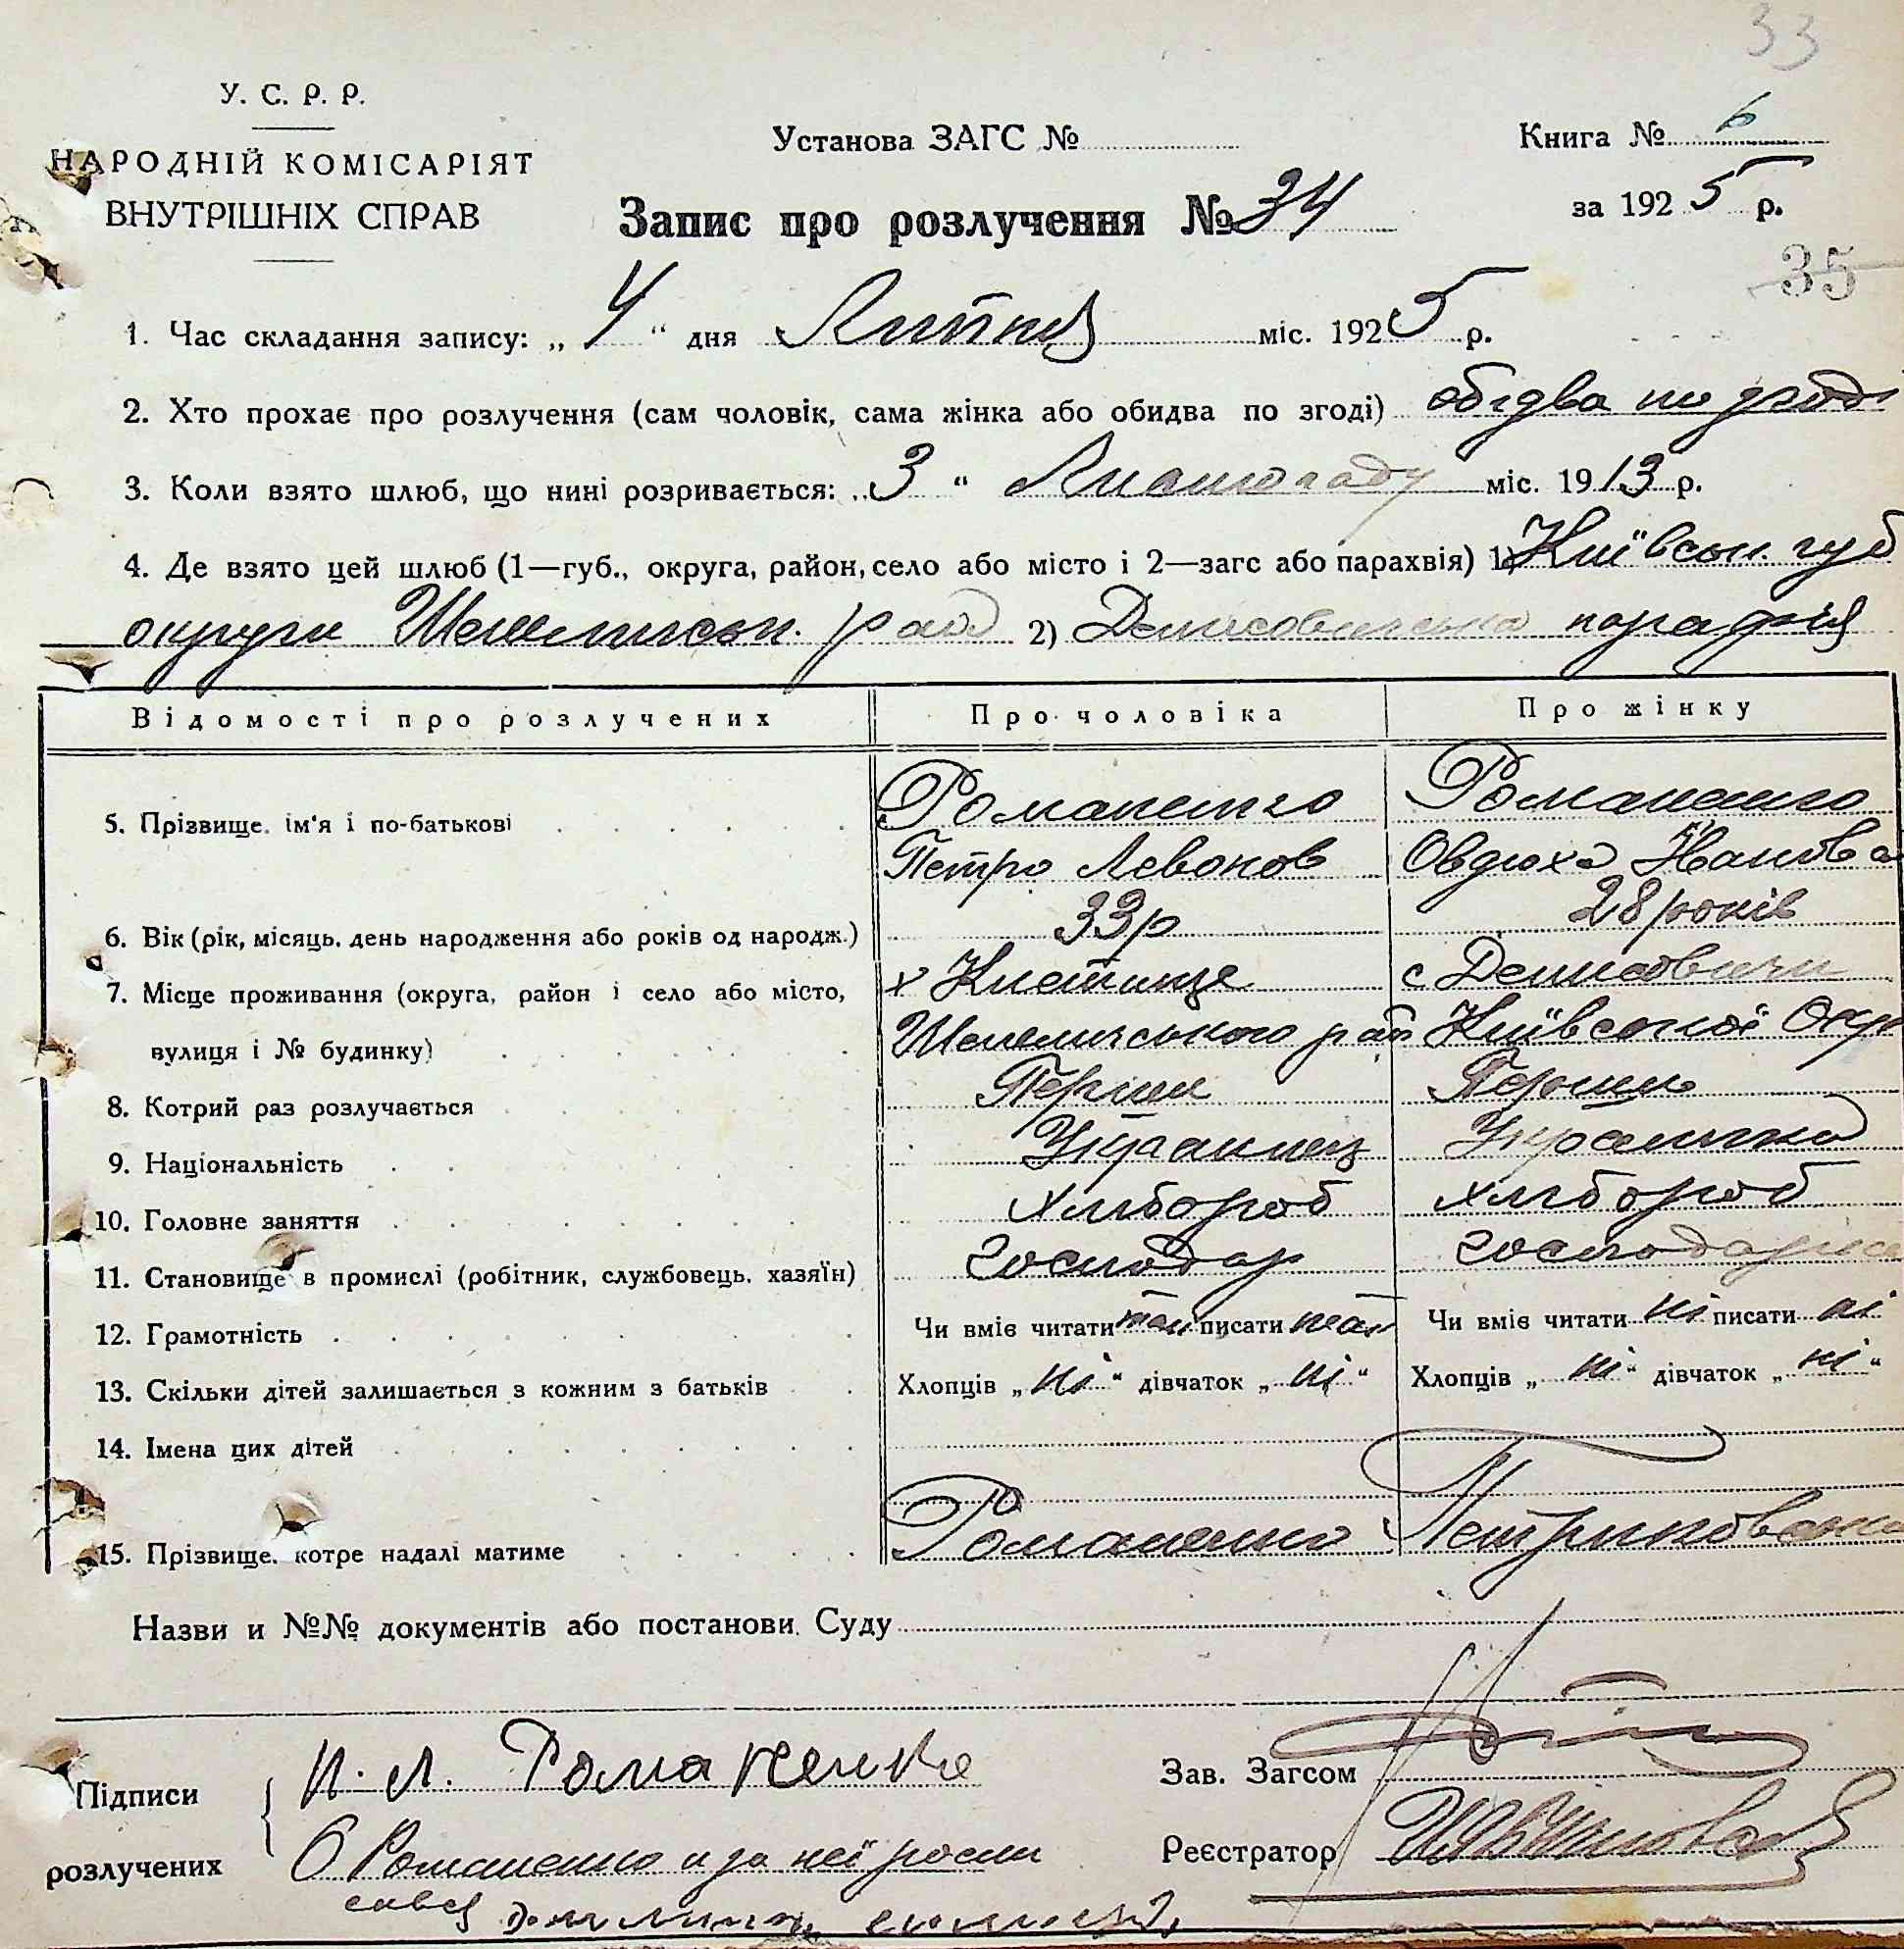 33
У. С. Р. Р.
НАРОДНІЙ КОМІСАРІЯТ
ВНУТРІШНІХ СПРАВ
Установа ЗАГС №
Книга № 6
за 1925 р.
Запис про розлучення № 34
35
1. Час складання запису: „ 4 “ дня Липня міс. 1925 р.
2. Хто прохає про розлучення (сам чоловік, сама жінка або обидва по згоді) обідва по згоді
3. Коли взято шлюб, що нині розривається: „ 3 “ Листопаду міс. 1913 р.
4. Де взято цей шлюб (1—губ., округа, район, село або місто і 2—загс або парахвія) 1) Київськ. губ
округи Шепелицьк. рай 2) Денисовицька парафія
Відомості про розлучених Про чоловіка Про жінку
5. Прізвище, ім'я і по-батькові Романенко Романенко
Петро Левонов Овдюха Іванова
6. Вік (рік, місяць, день народження або років од народж.) 33 р 28 років
7. Місце проживання (округа, район і село або місто, х с Денисовичи
вулиця і № будинку) Шепелицького рай Київської Окр
8. Котрий раз розлучається Перший Перший
9. Національність Українець Українка
10. Головне заняття хлібороб хлібороб
11. Становище в промислі (робітник, службовець, хазяїн) господар
12. Грамотність Чи вміє читати так писати так Чи вміє читати ні писати ні
13. Скільки дітей залишається з кожним з батьків Хлопців „ ні “ дівчаток „ ні “ Хлопців „ ні “ дівчаток „ ні “
14. Імена цих дітей
15. Прізвище, котре надалі матиме Романенко
Назви и №№ документів або постанови Суду
Підписи П. Л. Романенко Зав. Загсом
розлучених О Романенко а за неї Реєстратор